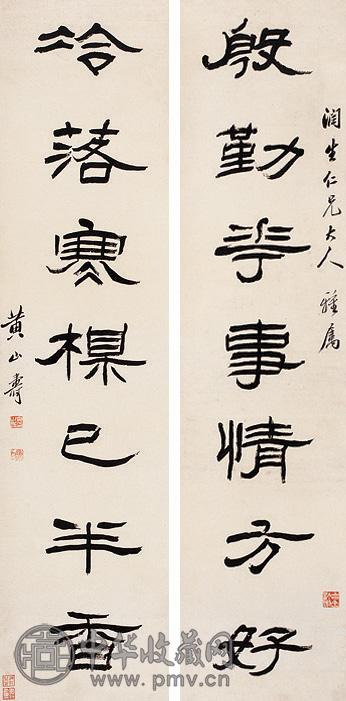 潤生仁兄大人 雅属
殷勤華事情方好
冷落寒楳已半香
黃山壽
中华收藏网
www.pmv.cn